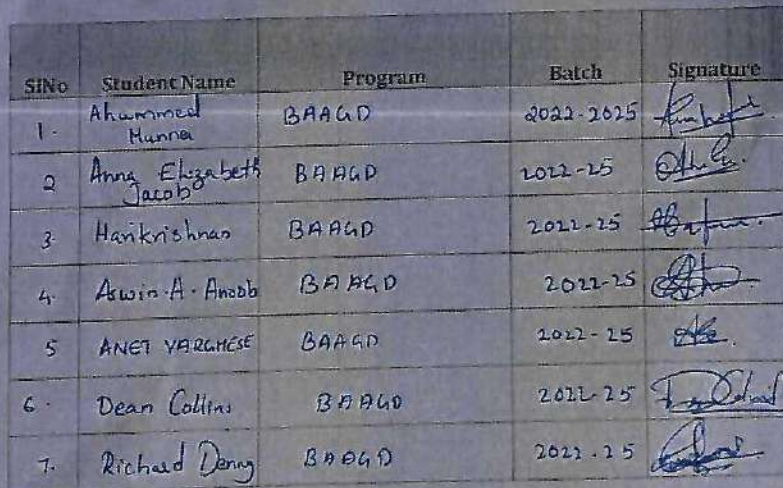 SlNo Student Name Program Batch Signature
1. Ahammed Munna BAAGD 2022-2025
2 Anna Elizabeth Jacob BAAGD 2022-25
3. Harikrishnan BAAGD 2022-25
4. Aswin.A.Anoob BAAGD 2022-25
5 ANET VARGHESE BAAGD 2022-25
6. Dean Collins BAAGD 2022-25
7. Richard Denny BAAGD 2022-25